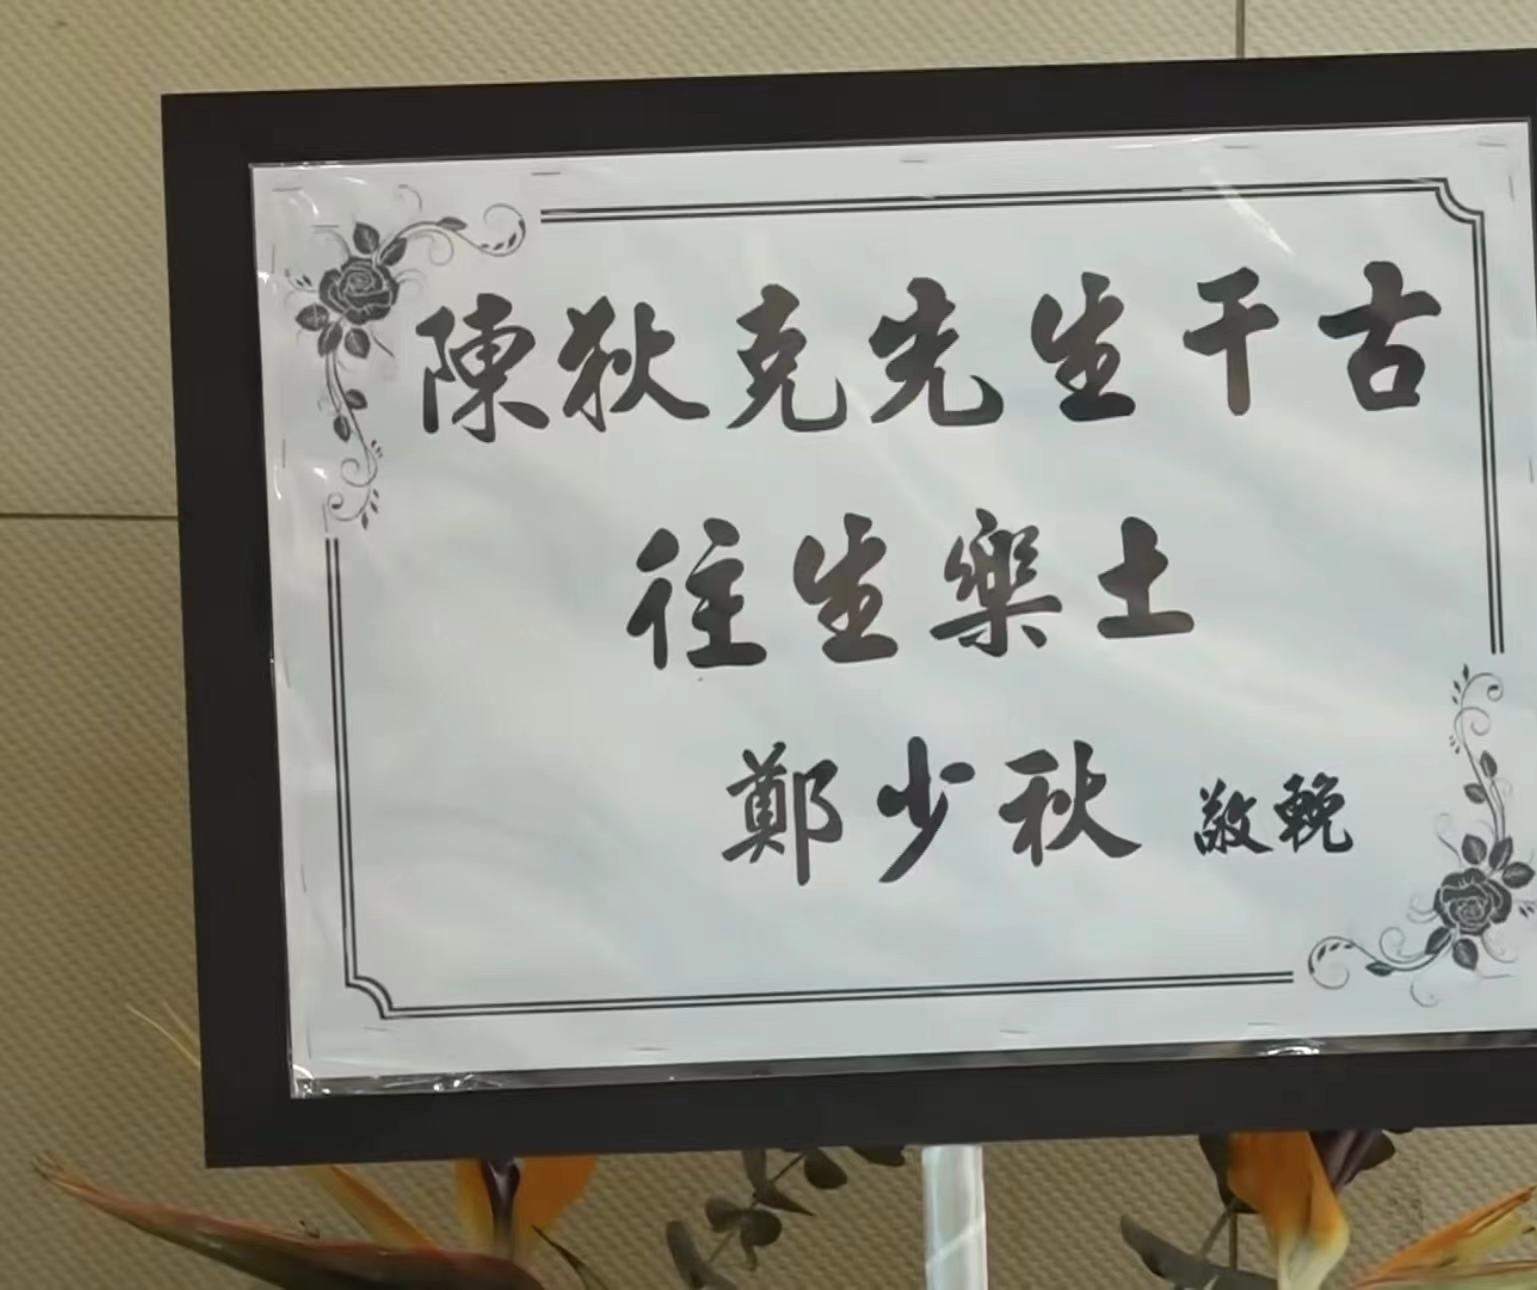 陳狄克先生千古
往生樂土
鄭少秋 敬輓